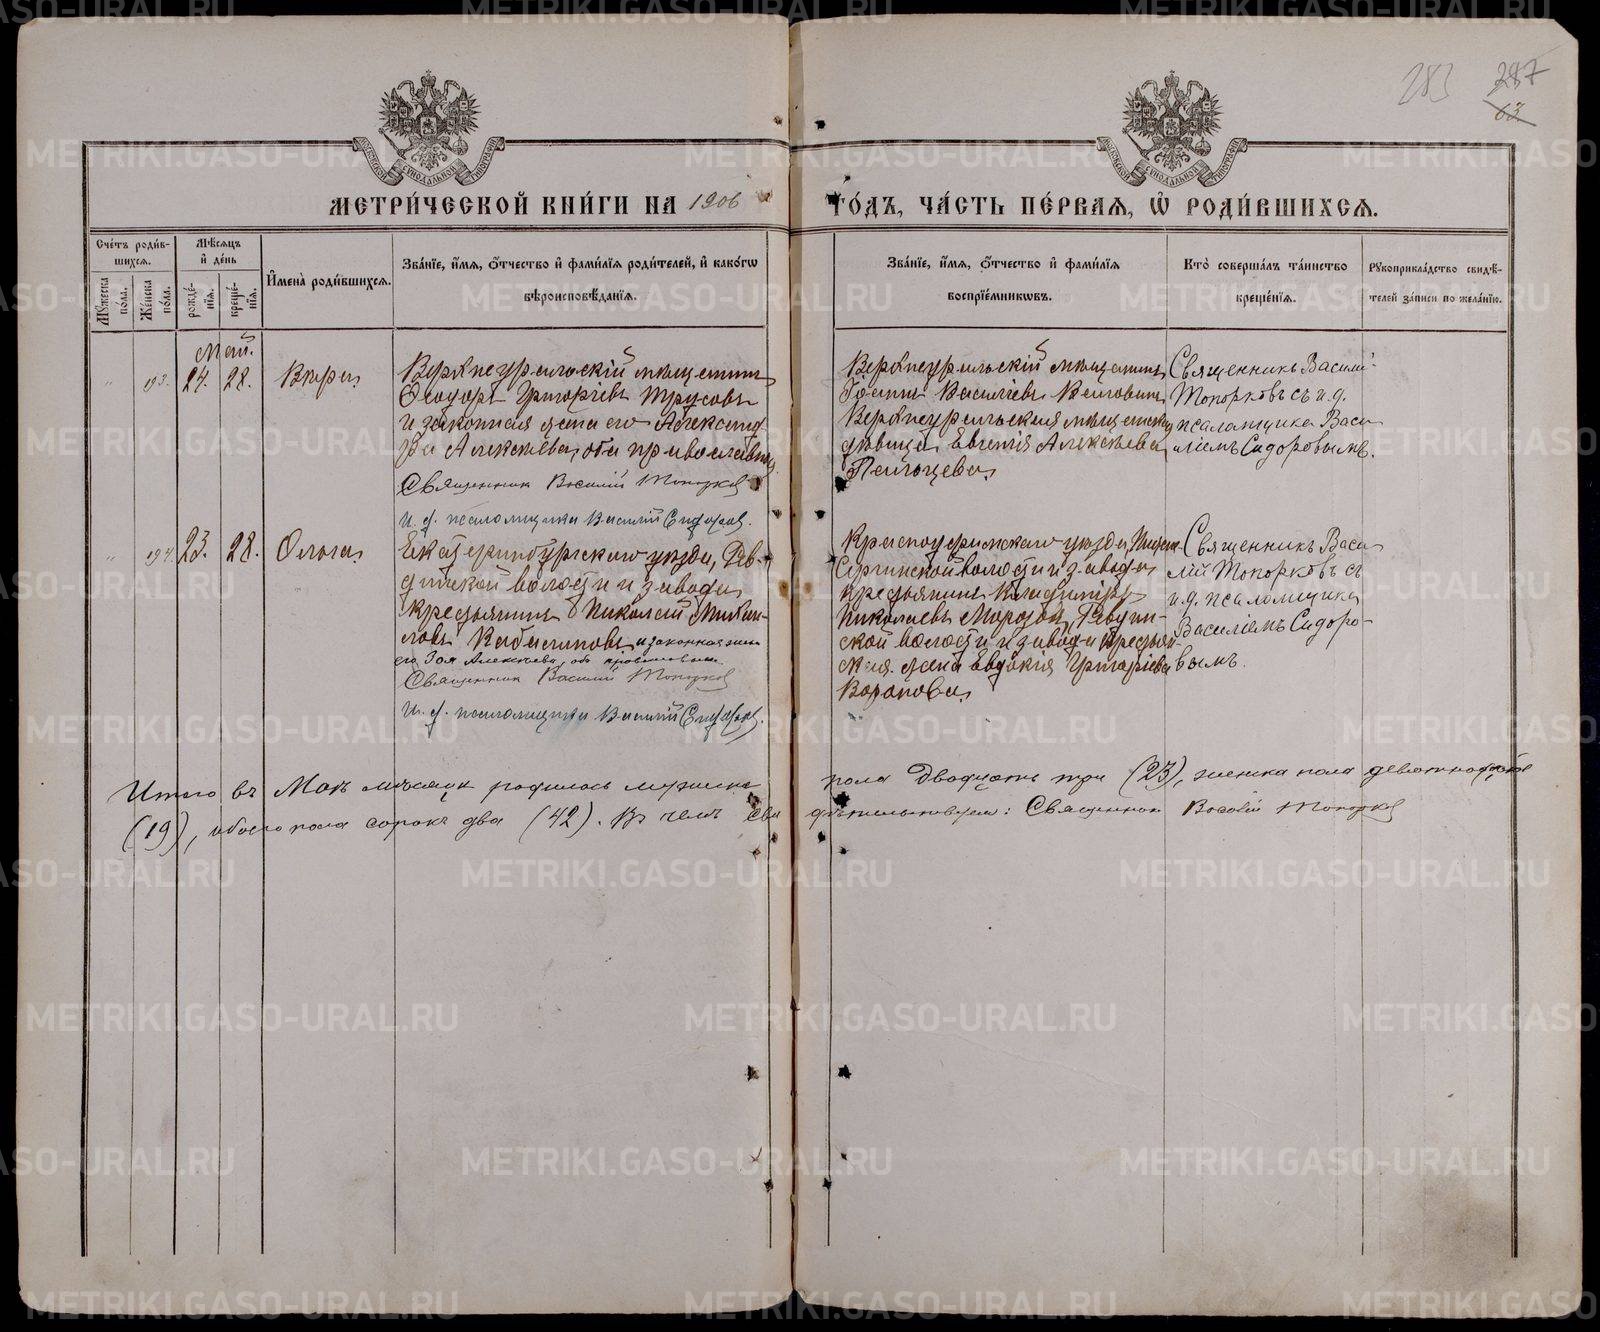 283 287
63
МЕТРИ́ЧЕСКОЙ КНИ́ГИ НА 1906 ГО́ДЪ, ЧА́СТЬ ПЕ́РВАЯ, Ѡ РОДИ́ВШИХСЯ.
Сче́тъ роди́вшихся.
Му́жеска по́ла.
Же́нска по́ла.
Мѣ́сяцъ и́ де́нь
рожде́нїя.
креще́нїя.
И҆мена̀ роди́вшихся.
Зва́нїе, и҆́мя, о҆́тчество и҆ фами́лїя роди́телей, и҆ како́гѡ
вѣроисповѣ́данїя.
Зва́нїе, и҆́мя, о҆́тчество и҆ фами́лїя
воспрїе́мникѡвъ.
Кто̀ соверша́лъ та́инство
креще́нїя.
Рукоприкла́дство свидѣ́-
телей за́писи по жела́нїю.
Май.
193. 24. 28. Вѣра,
Верхнеуральскій мѣщанинъ
Ѳеодоръ Григоріевъ Трусовъ
и законная жена его Александ-
ра Алексѣева, оба православные
Священникъ Василій Топорковъ
И. д. псаломщика Василій Сидоровъ.
Верхнеуральскій мѣщанинъ
Іоаннъ Васильевъ
Верхнеуральская мѣщанская
дѣвица Евгенія Алексѣева
Священникъ Василій
Топорковъ съ и.д.
псаломщика Васи-
ліемъ Сидоровымъ.
194. 23. 28. Ольга,
Екатеринбургскаго уѣзда, Рев-
динской волости и завода
крестьянинъ Николай Михаи-
ловъ и законная жена
его Зоя Алексѣева, оба православные
Священникъ Василій Топорковъ
И. д. псаломщика Василій Сидоровъ.
Красноуфимскаго уѣзда, Нижне-
Сергинской волости и завода
крестьянинъ Владиміръ
Николаевъ Морозовъ, Ревдин-
ской волости и завода крестьян-
ская жена Евдокія Григоріева
Воронова,
Священникъ Васи-
лій Топорковъ съ
и.д. псаломщика
Василіемъ Сидоро-
вымъ.
Итого въ Маѣ мѣсяцѣ родилось мужеска пола двадцать три (23), женска пола девятнадцать
(19), обоего пола сорокъ два (42). Въ чемъ свидѣтельствуемъ: Священникъ Василій Топорковъ
METRIKI.GASO-URAL.RU